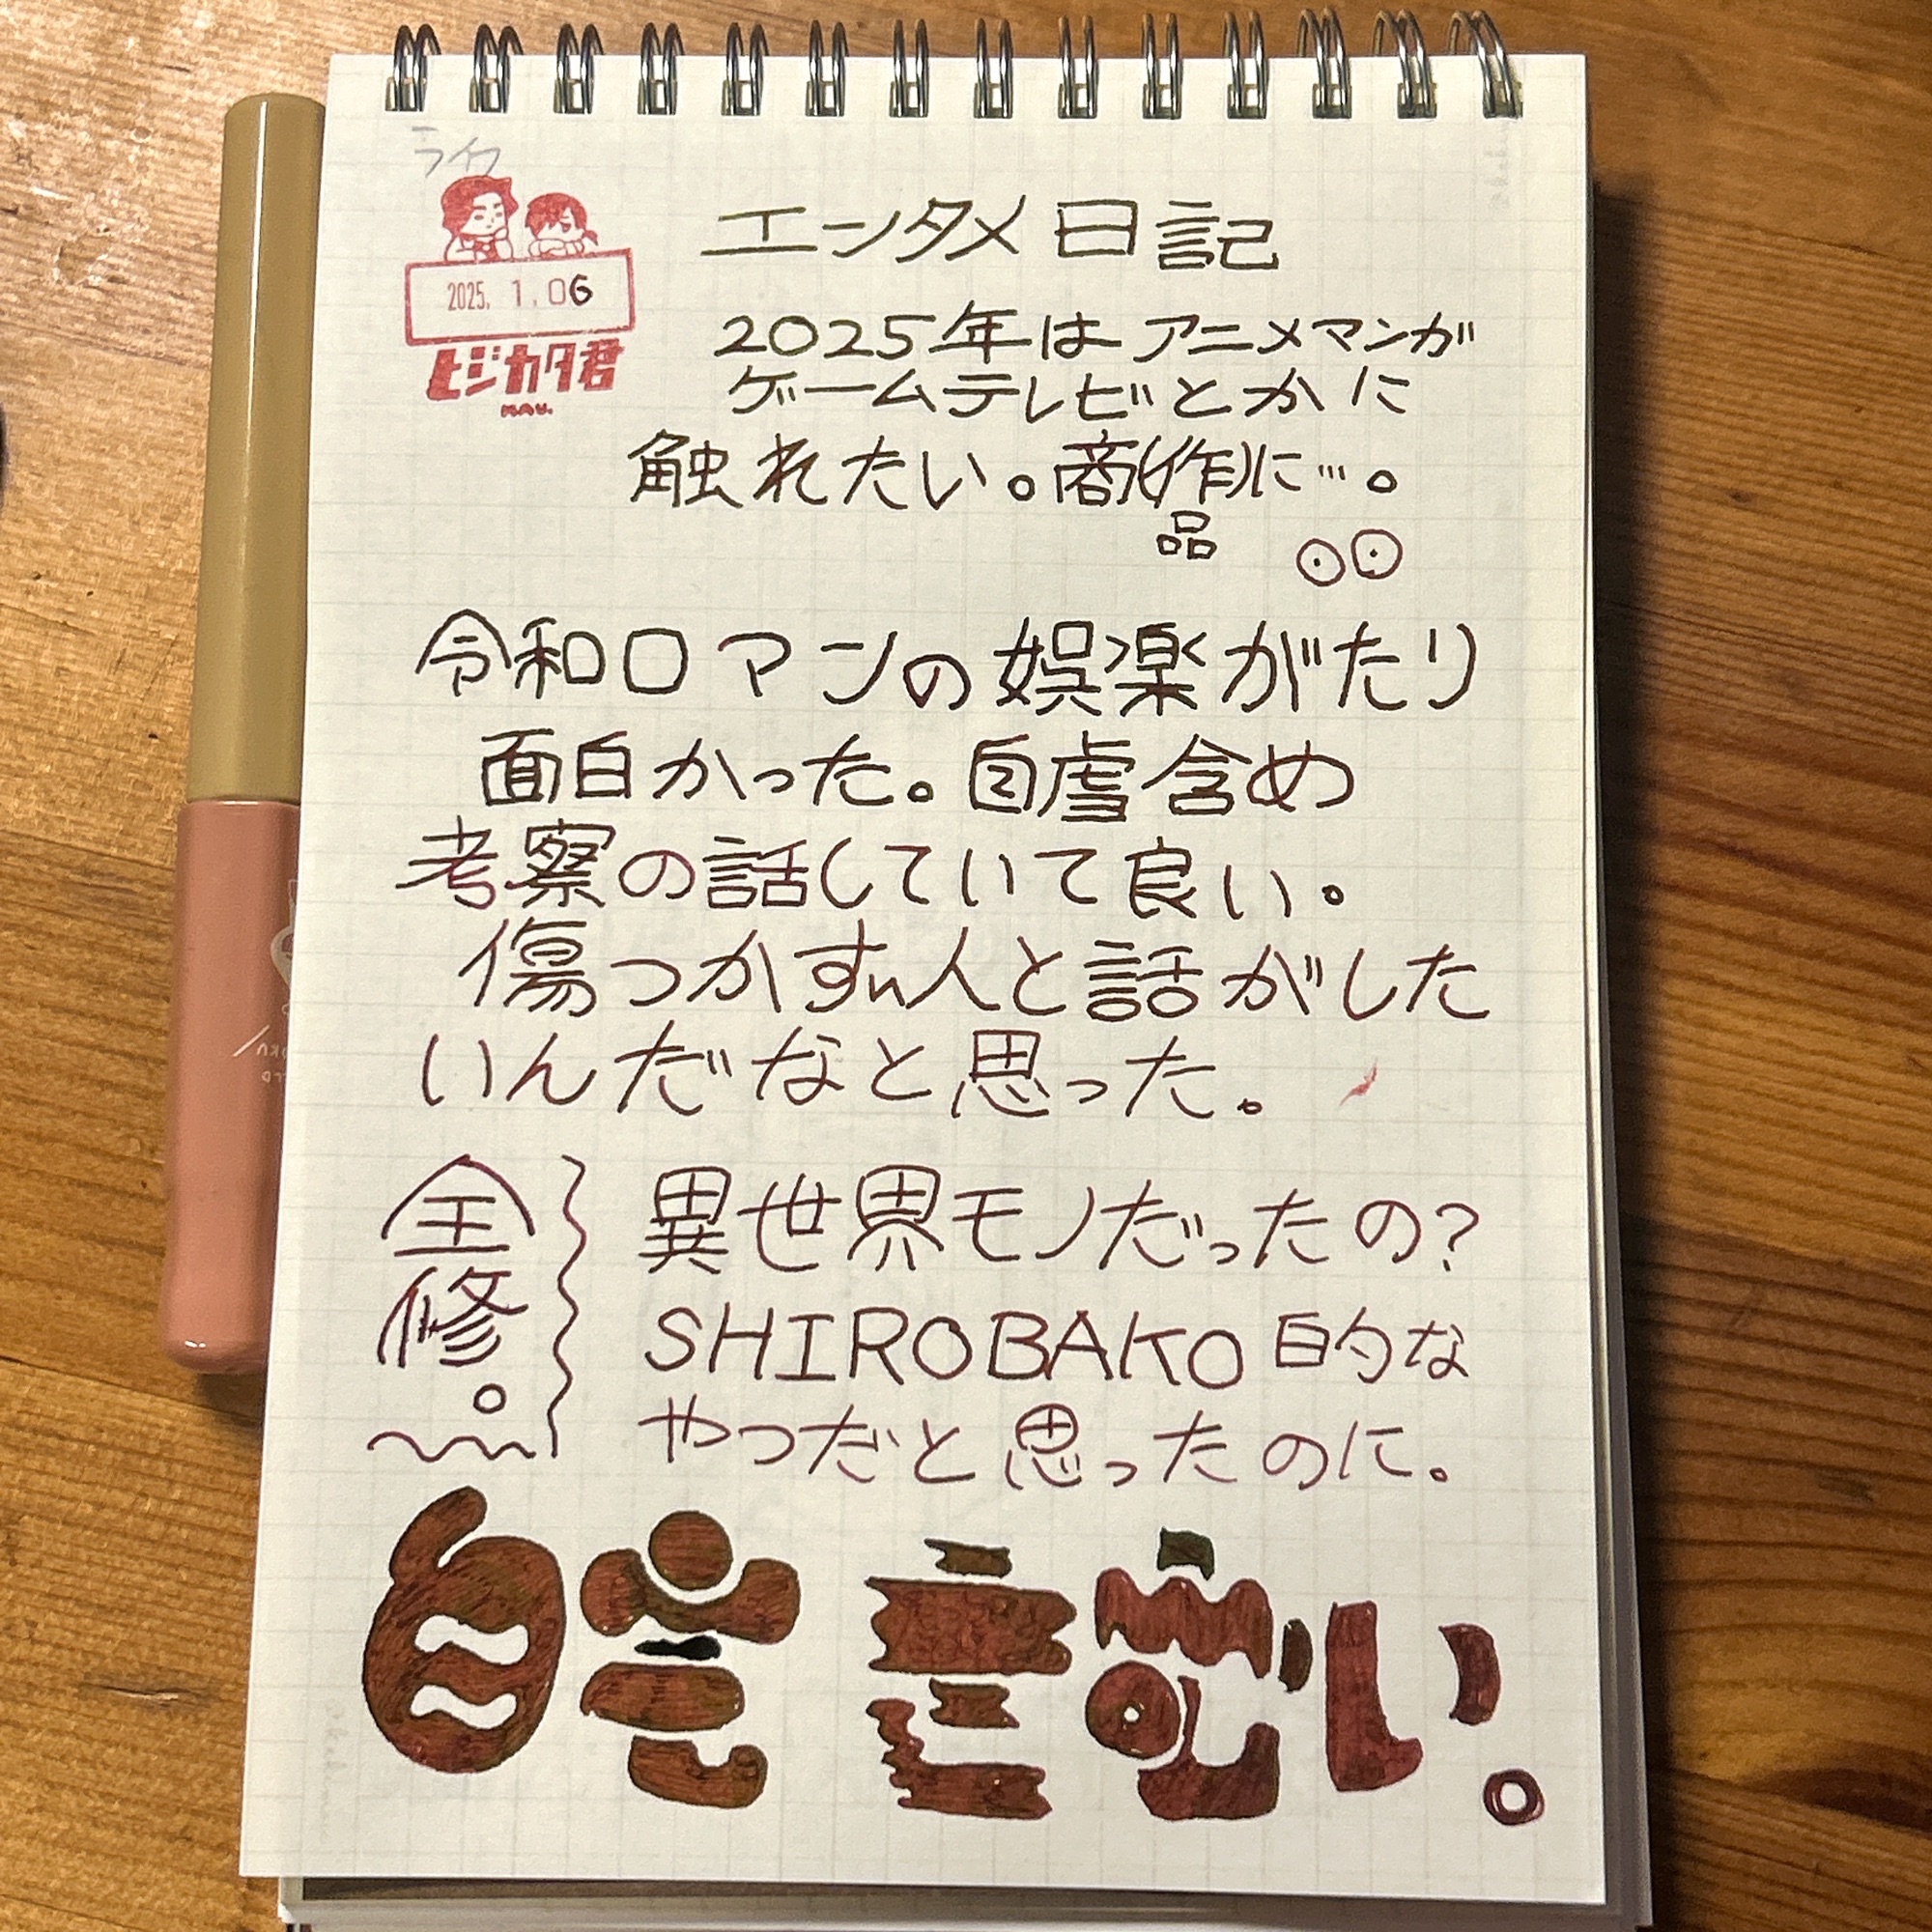 ライフ
2025. 1. 06
ヒジカタ君
エンタメ日記
2025年はアニメマンガ
ゲームテレビとかに
触れたい。商(作)に…。
品
令和ロマンの娯楽がたり
面白かった。自虐含め
考察の話していて良い。
傷つかずn人と話がした
いんだなと思った。
全修。
異世界モノだったの?
SHIROBAKO的な
やつだと思ったのに。
い。